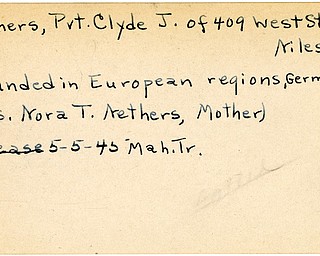 hers, Pvt. Clyde J. of 409 West St
Niles
unded in European regions, Germ
s. Nora T. Nethers, Mother)
ease 5-5-45 Mah. Tr.